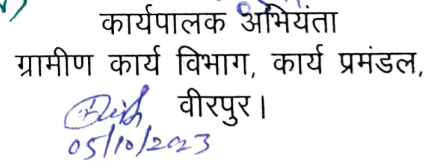 कार्यपालक अभियंता
ग्रामीण कार्य विभाग, कार्य प्रमंडल,
वीरपुर।
05/10/2023